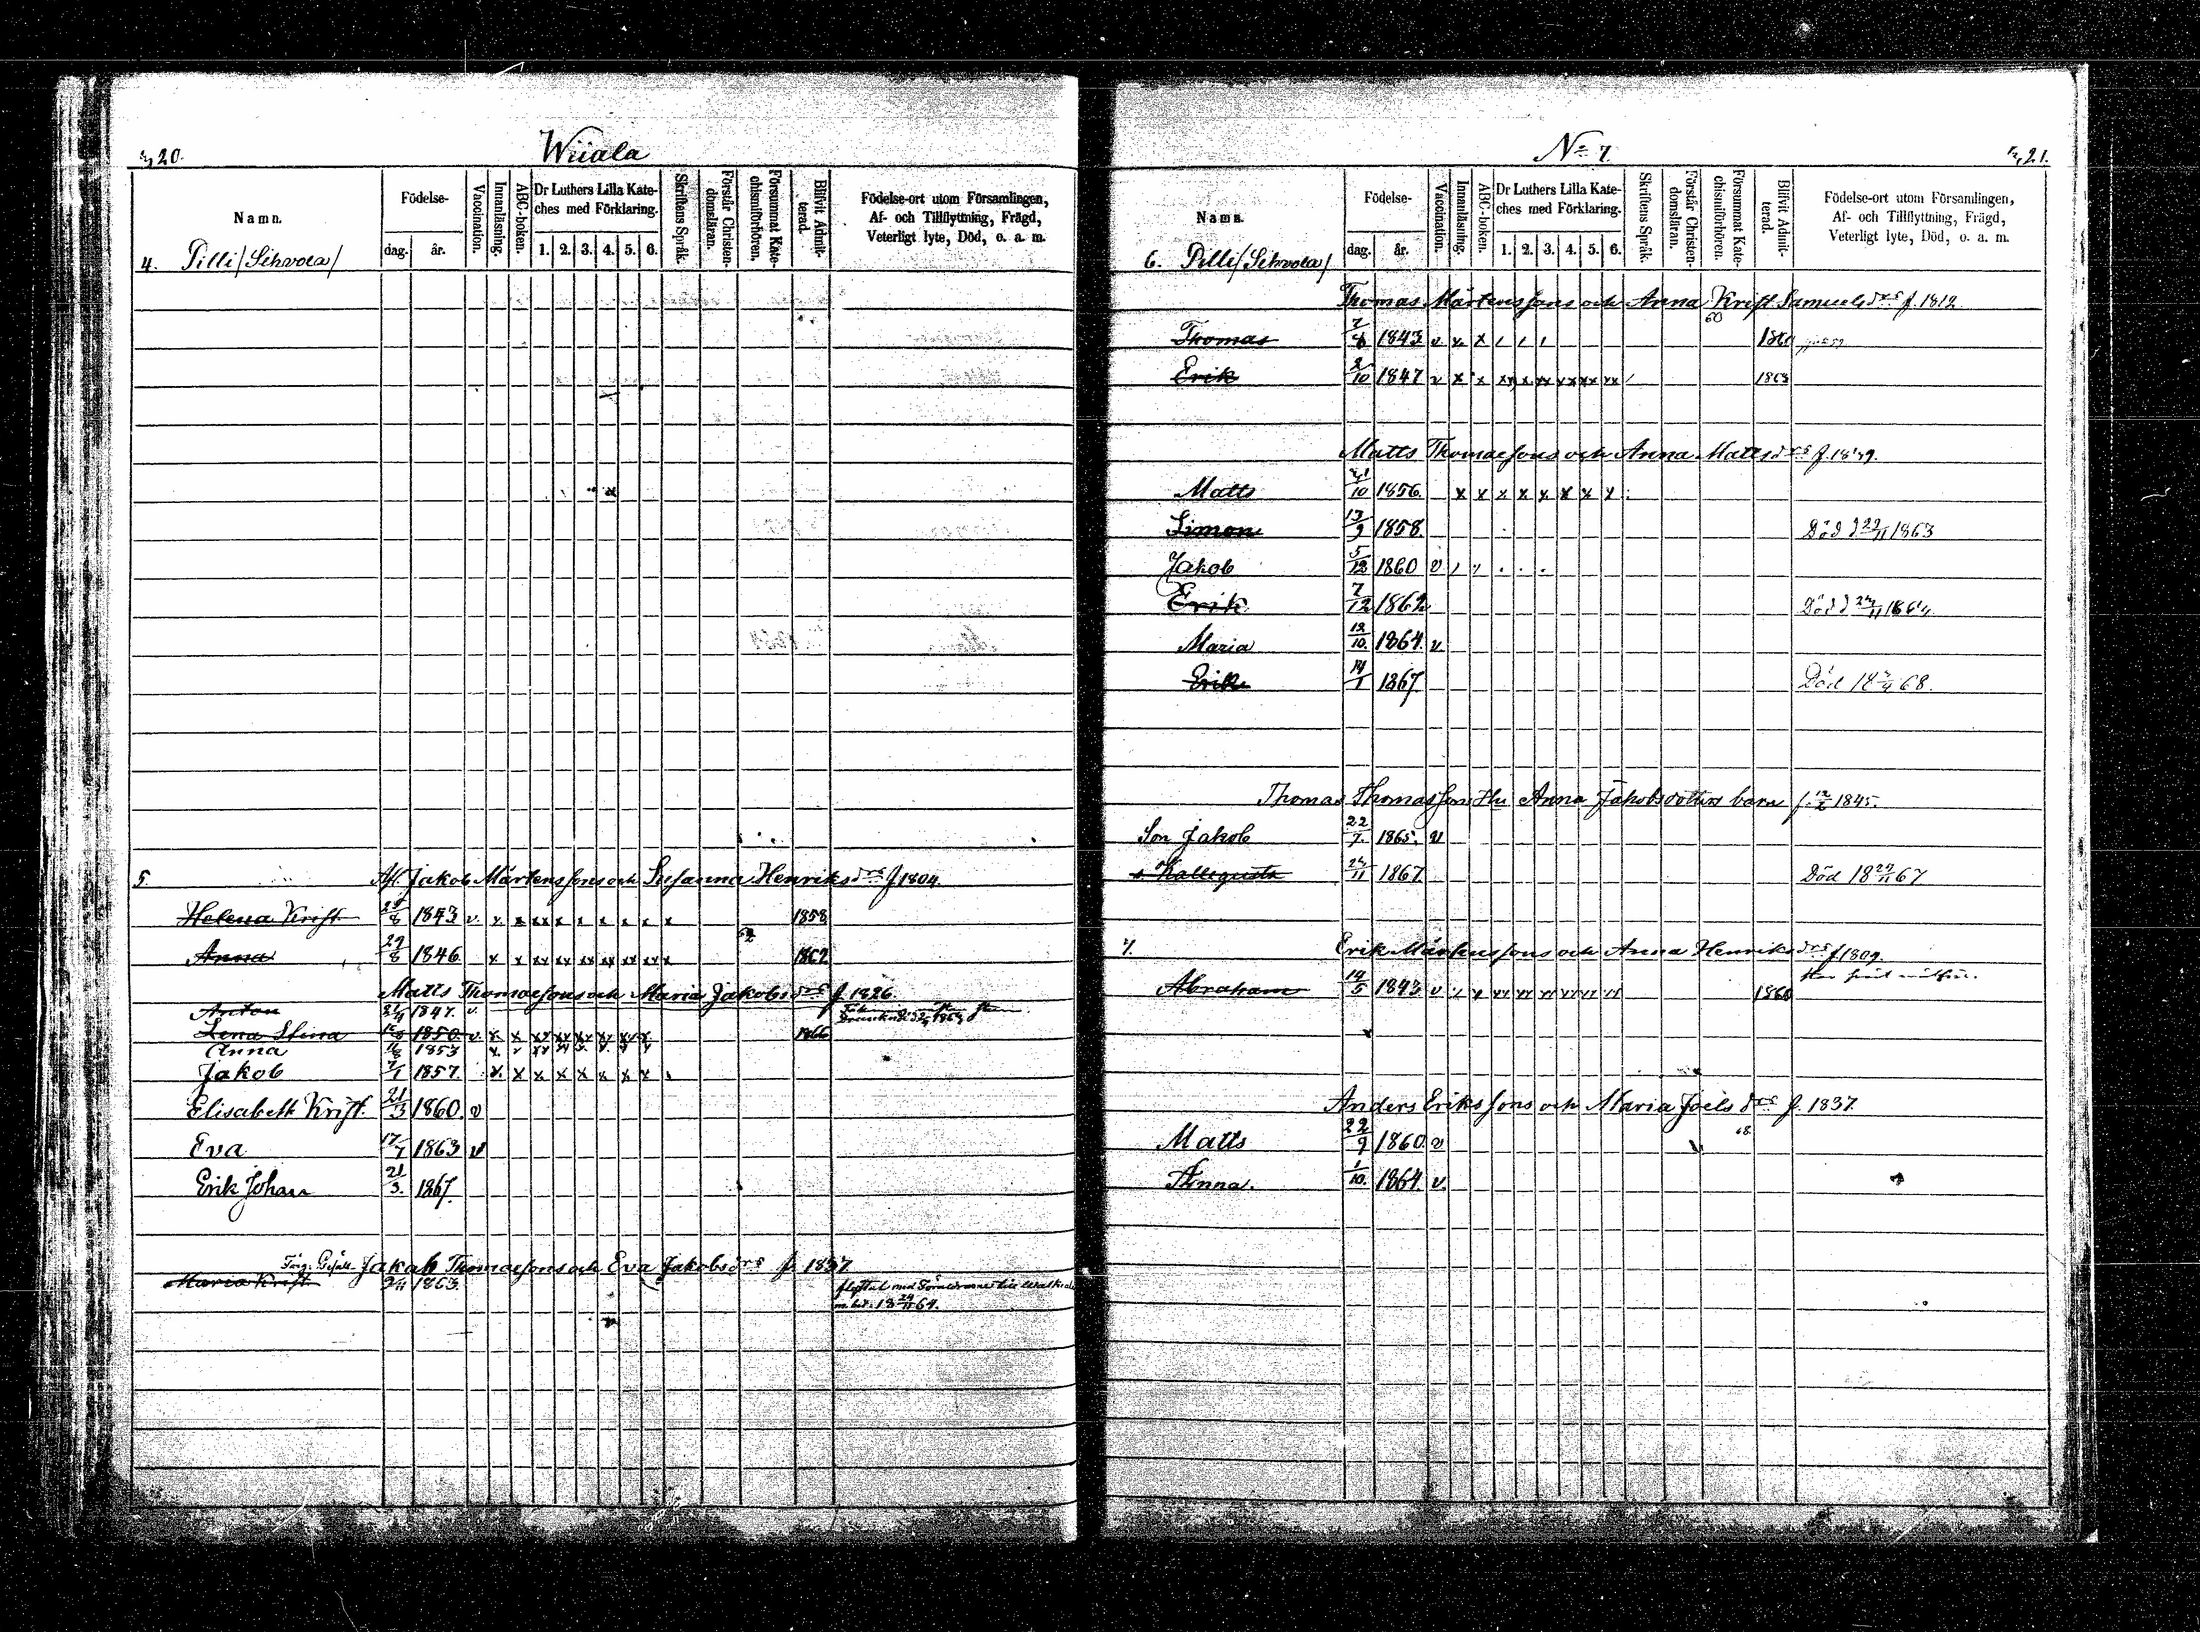 420.
Wiiala
Namn.
Födelse-
dag.
år.
Vaccination.
Innanläsning.
ABC-boken.
Dr Luthers Lilla Kate-
ches med Förklaring.
1. 2. 3. 4. 5. 6.
Skriftens Språk.
Förstår Christen-
domsläran.
Försummat Kate-
chismiförhören.
Blifvit Admit-
terad.
Födelse-ort utom Församlingen,
Af- och Tillflyttning, Frägd,
Veterligt lyte, Död, o. a. m.
4. Pilli/Sihvola/
5. Afl. Jakob Mårtenssons och Susanna Henriksdrs f 1804.
Helena Krist 1843 v. x x xx x x x x x x 1858
62
Anna 29/8 1846 x x xx xx xx xx xx xx x 1862
Matts Thomassons och Maria Jakobsdrs f 1826.
Anton 1847. v.
Lena Stina 1850 v x x xx xx xx xx xx x 1866
Anna 1853
Jakob 7/1 1857. x x x x x x x x
Elisabeth Krist. 21/3 1860. v
Eva 17/7 1863 v
Erik Johan 21/3. 1867.
Jakob Thomassons och Eva Jakobsdrs f. 1837
Maria Krist 1863.
flyttat med Föräldrarne till
64.
No 7.
421.
Namn.
Födelse-
dag.
år.
Vaccination.
Innanläsning.
ABC-boken.
Dr Luthers Lilla Kate-
ches med Förklaring.
1. 2. 3. 4. 5. 6.
Skriftens Språk.
Förstår Christen-
domsläran.
Försummat Kate-
chismiförhören.
Blifvit Admit-
terad.
Födelse-ort utom Församlingen,
Af- och Tillflyttning, Frägd,
Veterligt lyte, Död, o. a. m.
6. Pilli/Sihvola/
Thomas Mårtenssons och Anna Krist Samuelsdrs f. 1812
60
Thomas 1843 v x x / / / 1860
Erik 2/10 1847 v x x xx x xx xx xx xx / 1863
Matts Thomassons och Anna Mattsdrs f.
Matts 1856. x x x x x x x x
Simon 13/9 1858. Död d 29/11 1863
Jakob 5/12 1860 v
Erik 7/12 1862 Död d 1864
Maria 12/10. 1864. v
Erik 14/1 1867 Död 18 68.
Thomas Thomassons Hu Anna Jakobsdotters barn f. 12/2 1845.
Son Jakob 22/7. 1865. v
s. Kallegusta 1867. Död 18 67
7. Erik Mårtenssons och Anna Henriksdrs f 1809.
Abraham 14/5 1843 v 1860
Anders Erikssons och Maria Joelsdrs f. 1837.
68
Matts 22/9 1860. v
Anna. 1/10. 1864. v.